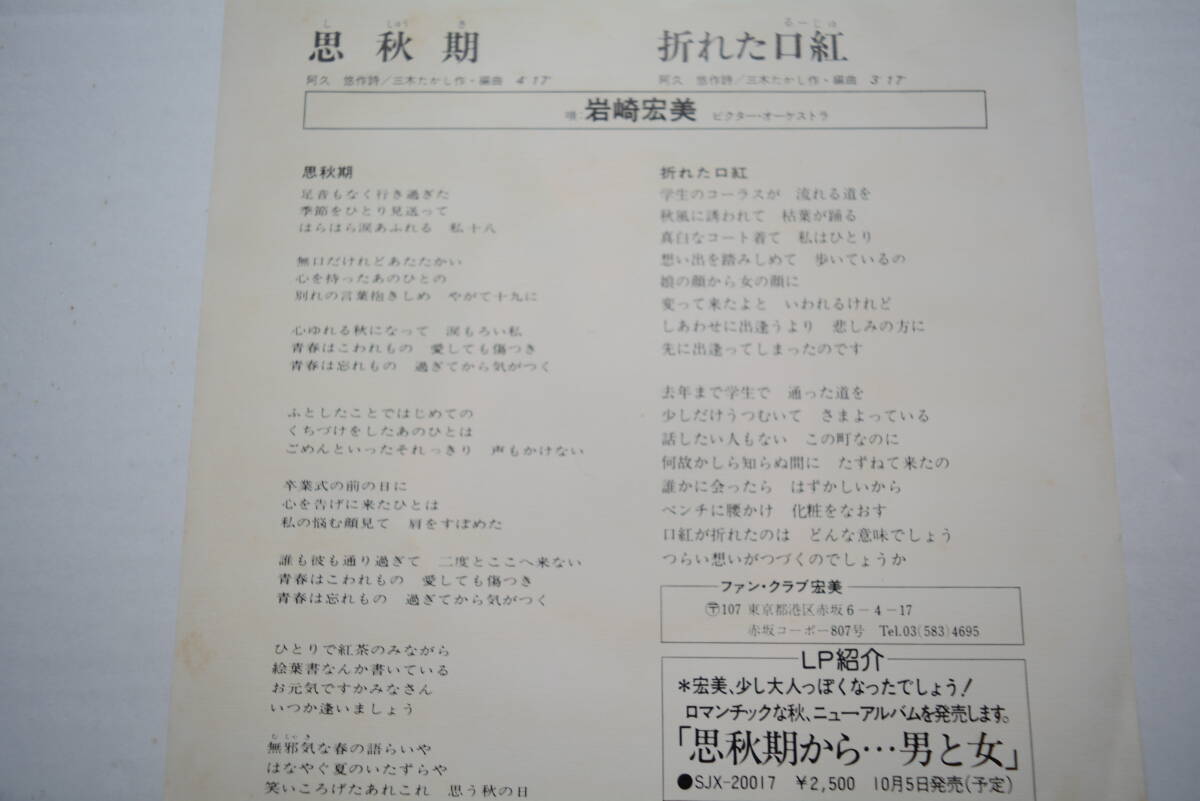 し しゅう き
思秋期
阿久 悠作詩/三木たかし作・編曲 4'17"
るーじゅ
折れた口紅
阿久 悠作詩/三木たかし作・編曲 3'17"
唄:岩崎宏美 ビクター・オーケストラ
思秋期
足音もなく行き過ぎた
季節をひとり見送って
はらはら涙あふれる 私十八
無口だけれどあたたかい
心を持ったあのひとの
別れの言葉抱きしめ やがて十九に
心ゆれる秋になって 涙もろい私
青春はこわれもの 愛しても傷つき
青春は忘れもの 過ぎてから気がつく
ふとしたことではじめての
くちづけをしたあのひとは
ごめんといったそれっきり 声もかけない
卒業式の前の日に
心を告げに来たひとは
私の悩む顔見て 肩をすぼめた
誰も彼も通り過ぎて 二度とここへ来ない
青春はこわれもの 愛しても傷つき
青春は忘れもの 過ぎてから気がつく
ひとりで紅茶のみながら
絵葉書なんか書いている
お元気ですかみなさん
いつか逢いましょう
むじゃき
無邪気な春の語らいや
はなやぐ夏のいたずらや
笑いころげたあれこれ 思う秋の日
折れた口紅
学生のコーラスが 流れる道を
秋風に誘われて 枯葉が踊る
真白なコート着て 私はひとり
想い出を踏みしめて 歩いているの
娘の顔から女の顔に
変って来たよと いわれるけれど
しあわせに出逢うより 悲しみの方に
先に出逢ってしまったのです
去年まで学生で 通った道を
少しだけうつむいて さまよっている
話したい人もない この町なのに
何故かしら知らぬ間に たずねて来たの
誰かに会ったら はずかしいから
ベンチに腰かけ 化粧をなおす
口紅が折れたのは どんな意味でしょう
つらい想いがつづくのでしょうか
ファン・クラブ宏美
〒107 東京都港区赤坂6-4-17
赤坂コーポー807号 Tel.03(583)4695
LP紹介
*宏美、少し大人っぽくなったでしょう!
ロマンチックな秋、ニューアルバムを発売します。
「思秋期から…男と女」
●SJX-20017 ¥2,500 10月5日発売(予定)